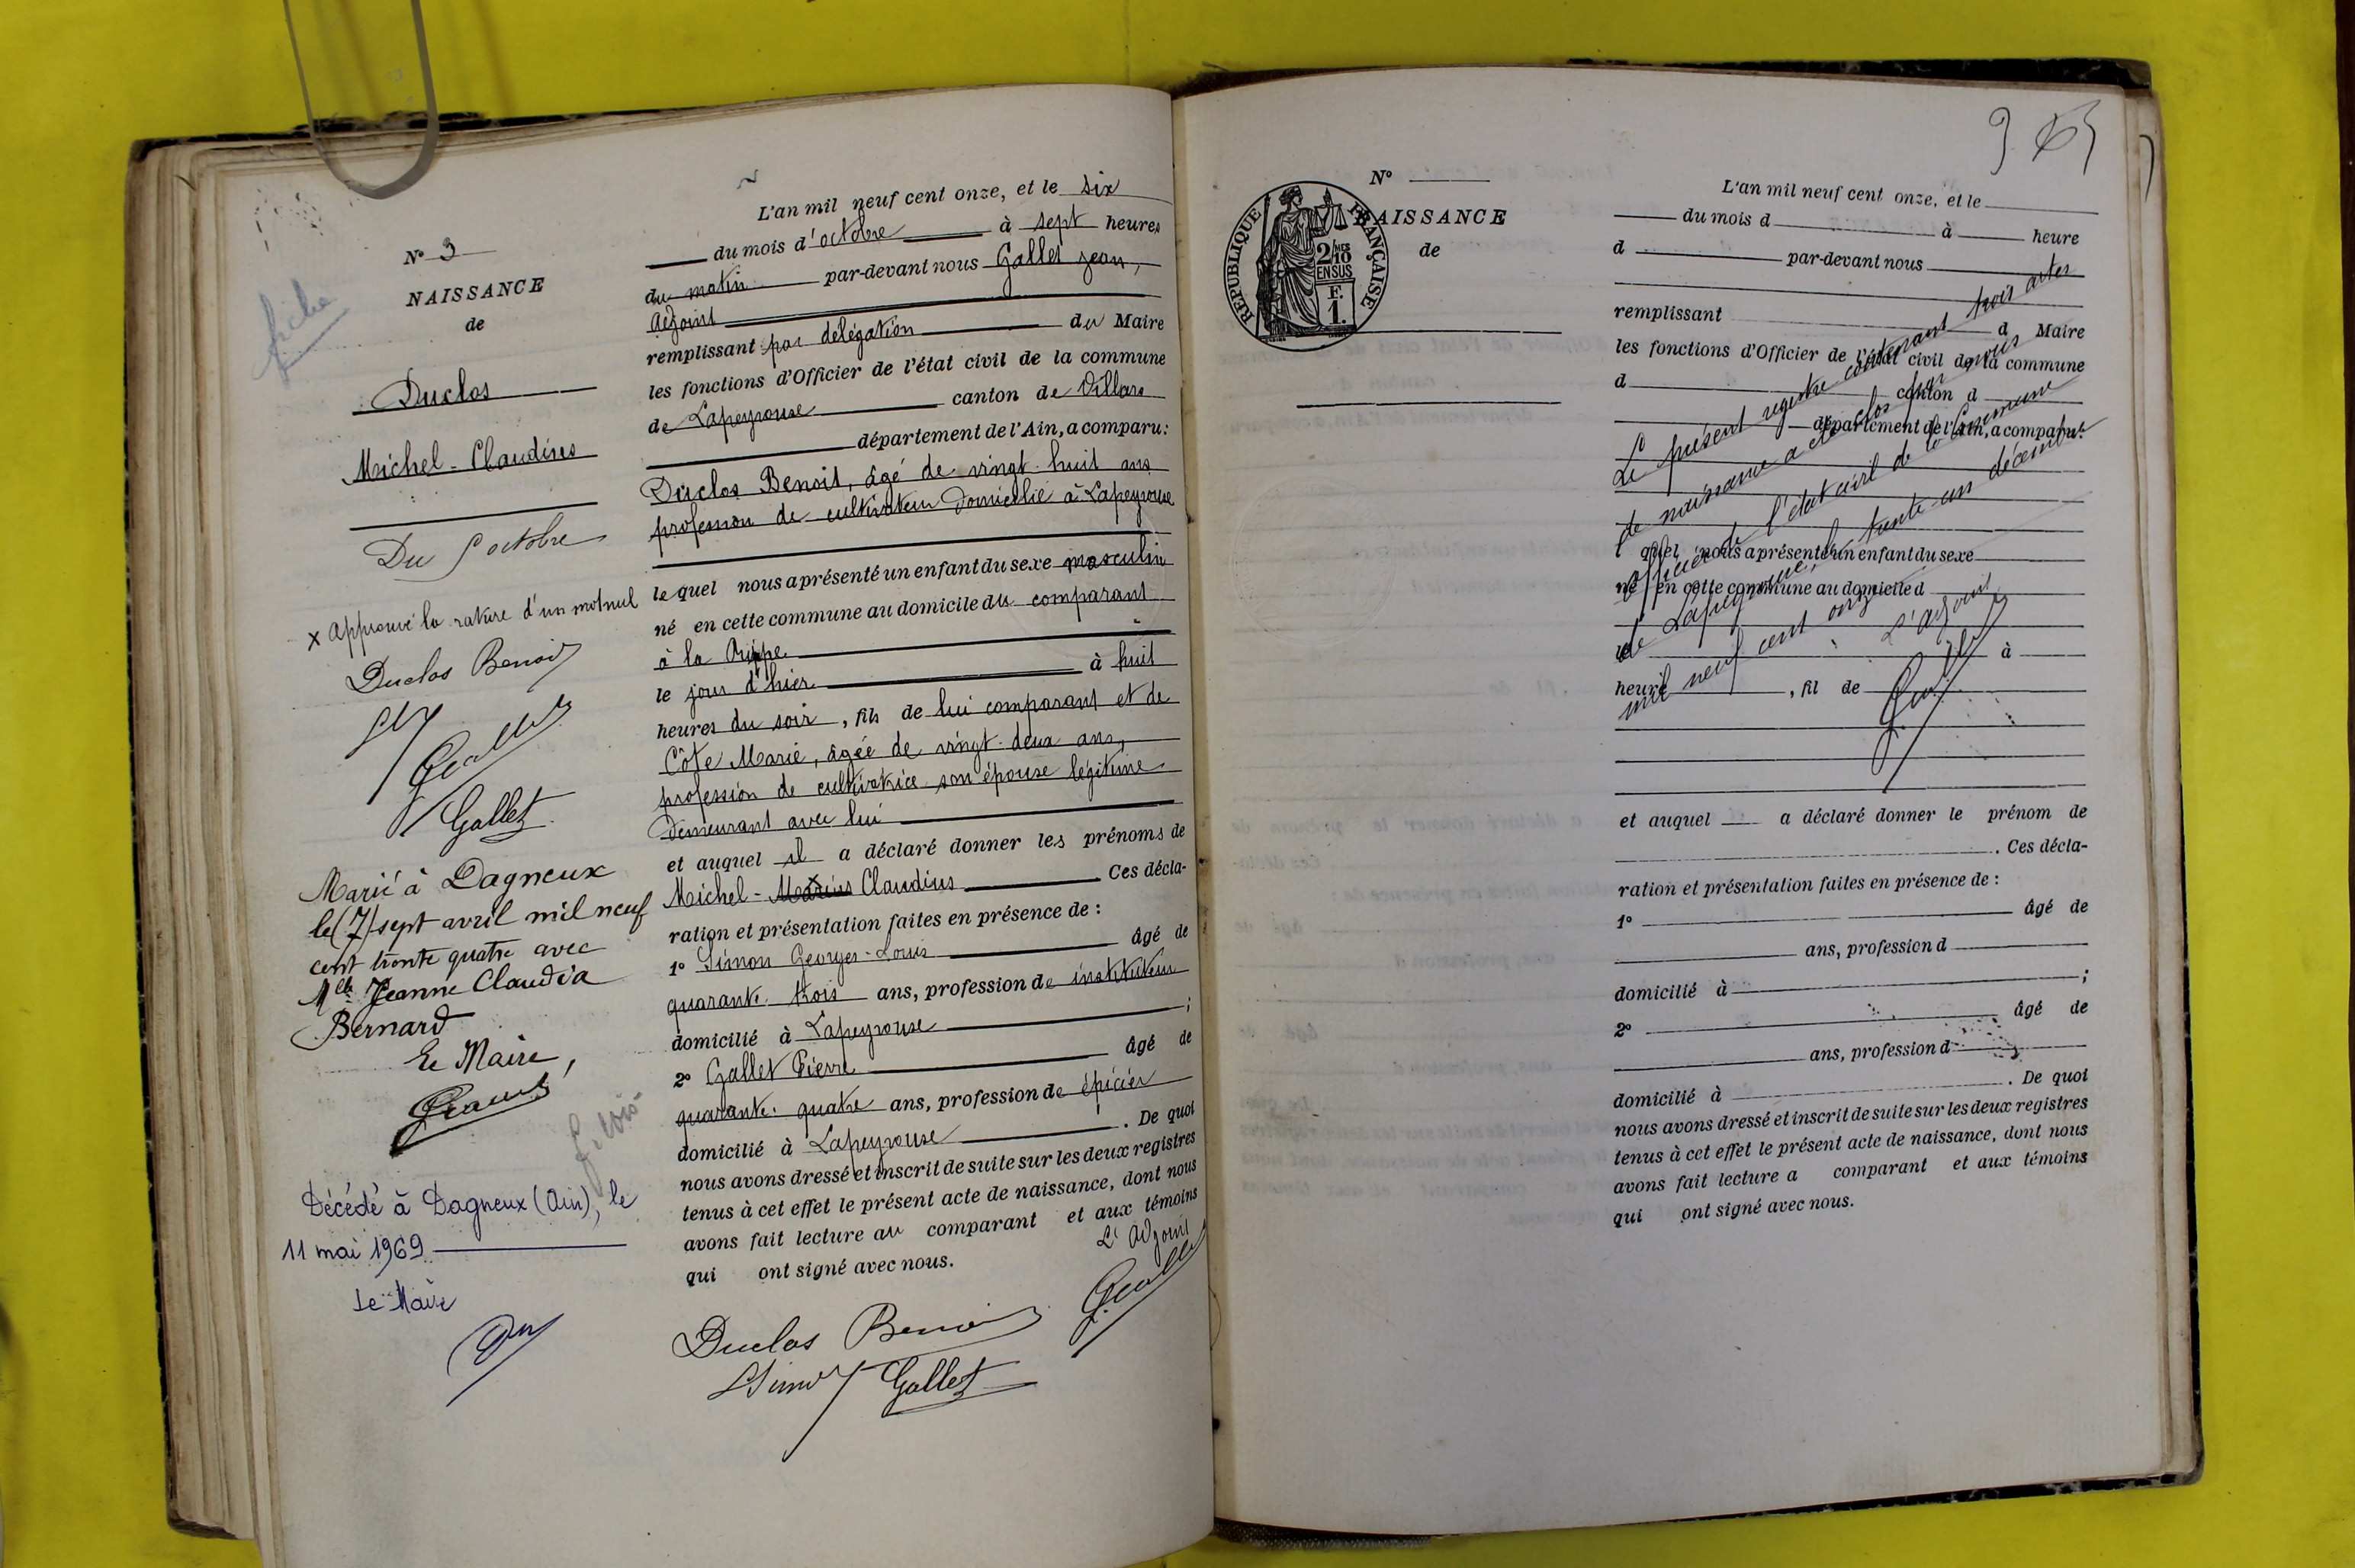 N° 3
NAISSANCE
de
Duclos
Michel - Claudius
Du 5 octobre
fiche
x Approuvé la rature d'un mot nul
Duclos Benoit
Gallet
Marié à Dagneux
le (7) sept avril mil neuf
cent trente quatre avec
Mlle Jeanne Claudia
Bernard
Le Maire,
Décédé à Dagneux (Ain), le
11 mai 1969
Le Maire
L'an mil neuf cent onze, et le six
du mois d'octobre à sept heures
du matin par-devant nous Gallet Jean,
adjoint
remplissant par délégation du Maire
les fonctions d'Officier de l'état civil de la commune
de Lapeyrouse canton de Villars
département de l'Ain, a comparu:
Duclos Benoit, âgé de vingt-huit ans
profession de cultivateur domicilié à Lapeyrouse
lequel nous a présenté un enfant du sexe masculin
né en cette commune au domicile du comparant
à la Prippe
le jour d'hier à huit
heures du soir, fils de lui comparant et de
Côte Marie, âgée de vingt-deux ans,
profession de cultivatrice son épouse légitime
demeurant avec lui
et auquel il a déclaré donner les prénoms de
Michel - Marius Claudius Ces décla-
ration et présentation faites en présence de :
1° Simon Georges-Louis âgé de
quarante-trois ans, profession de instituteur
domicilié à Lapeyrouse ;
2° Gallet Pierre âgé de
quarante-quatre ans, profession de épicier
domicilié à Lapeyrouse . De quoi
nous avons dressé et inscrit de suite sur les deux registres
tenus à cet effet le présent acte de naissance, dont nous
avons fait lecture au comparant et aux témoins
qui ont signé avec nous.
L'Adjoint
Duclos Benoit
Simon Gallet
N°
NAISSANCE
de
REPUBLIQUE FRANÇAISE
2/10 MES
EN SUS
F.
1.
L'an mil neuf cent onze, et le
du mois d à heure
d par-devant nous
remplissant d Maire
les fonctions d'Officier de l'état civil de la commune
d canton d
département de l'Ain, a comparu:
l quel nous a présenté un enfant du sexe
né en cette commune au domicile d
le à
heure , fil de
Le présent registre contenant trois actes
de naissance a été clos par nous
officier de l'état civil de la Commune
de Lapeyrouse, le trente-un décembre
mil neuf cent onze
L'adjoint
et auquel a déclaré donner le prénom de
. Ces décla-
ration et présentation faites en présence de :
1° âgé de
ans, profession d
domicilié à ;
2° âgé de
ans, profession d
domicilié à . De quoi
nous avons dressé et inscrit de suite sur les deux registres
tenus à cet effet le présent acte de naissance, dont nous
avons fait lecture a comparant et aux témoins
qui ont signé avec nous.